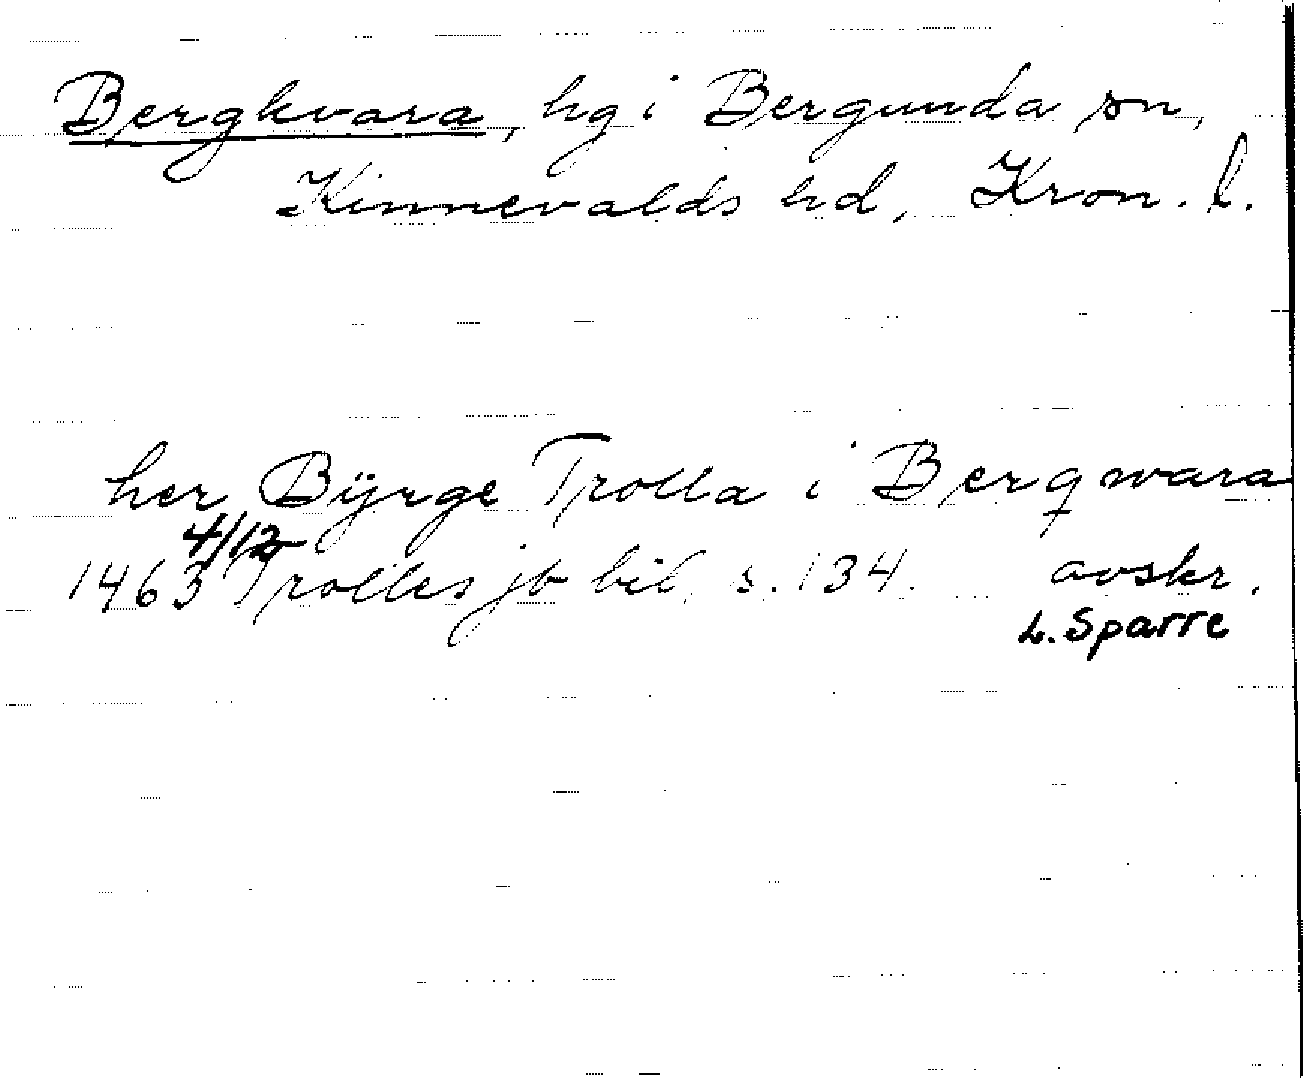 Bergkvara, hg i Bergunda sn,
Kinnevalds hd, Kron. l.
her Bÿrge Trolla i Berqwara
4/12
1463 Trolles jb bil. s. 134. avskr.
L. Sparre